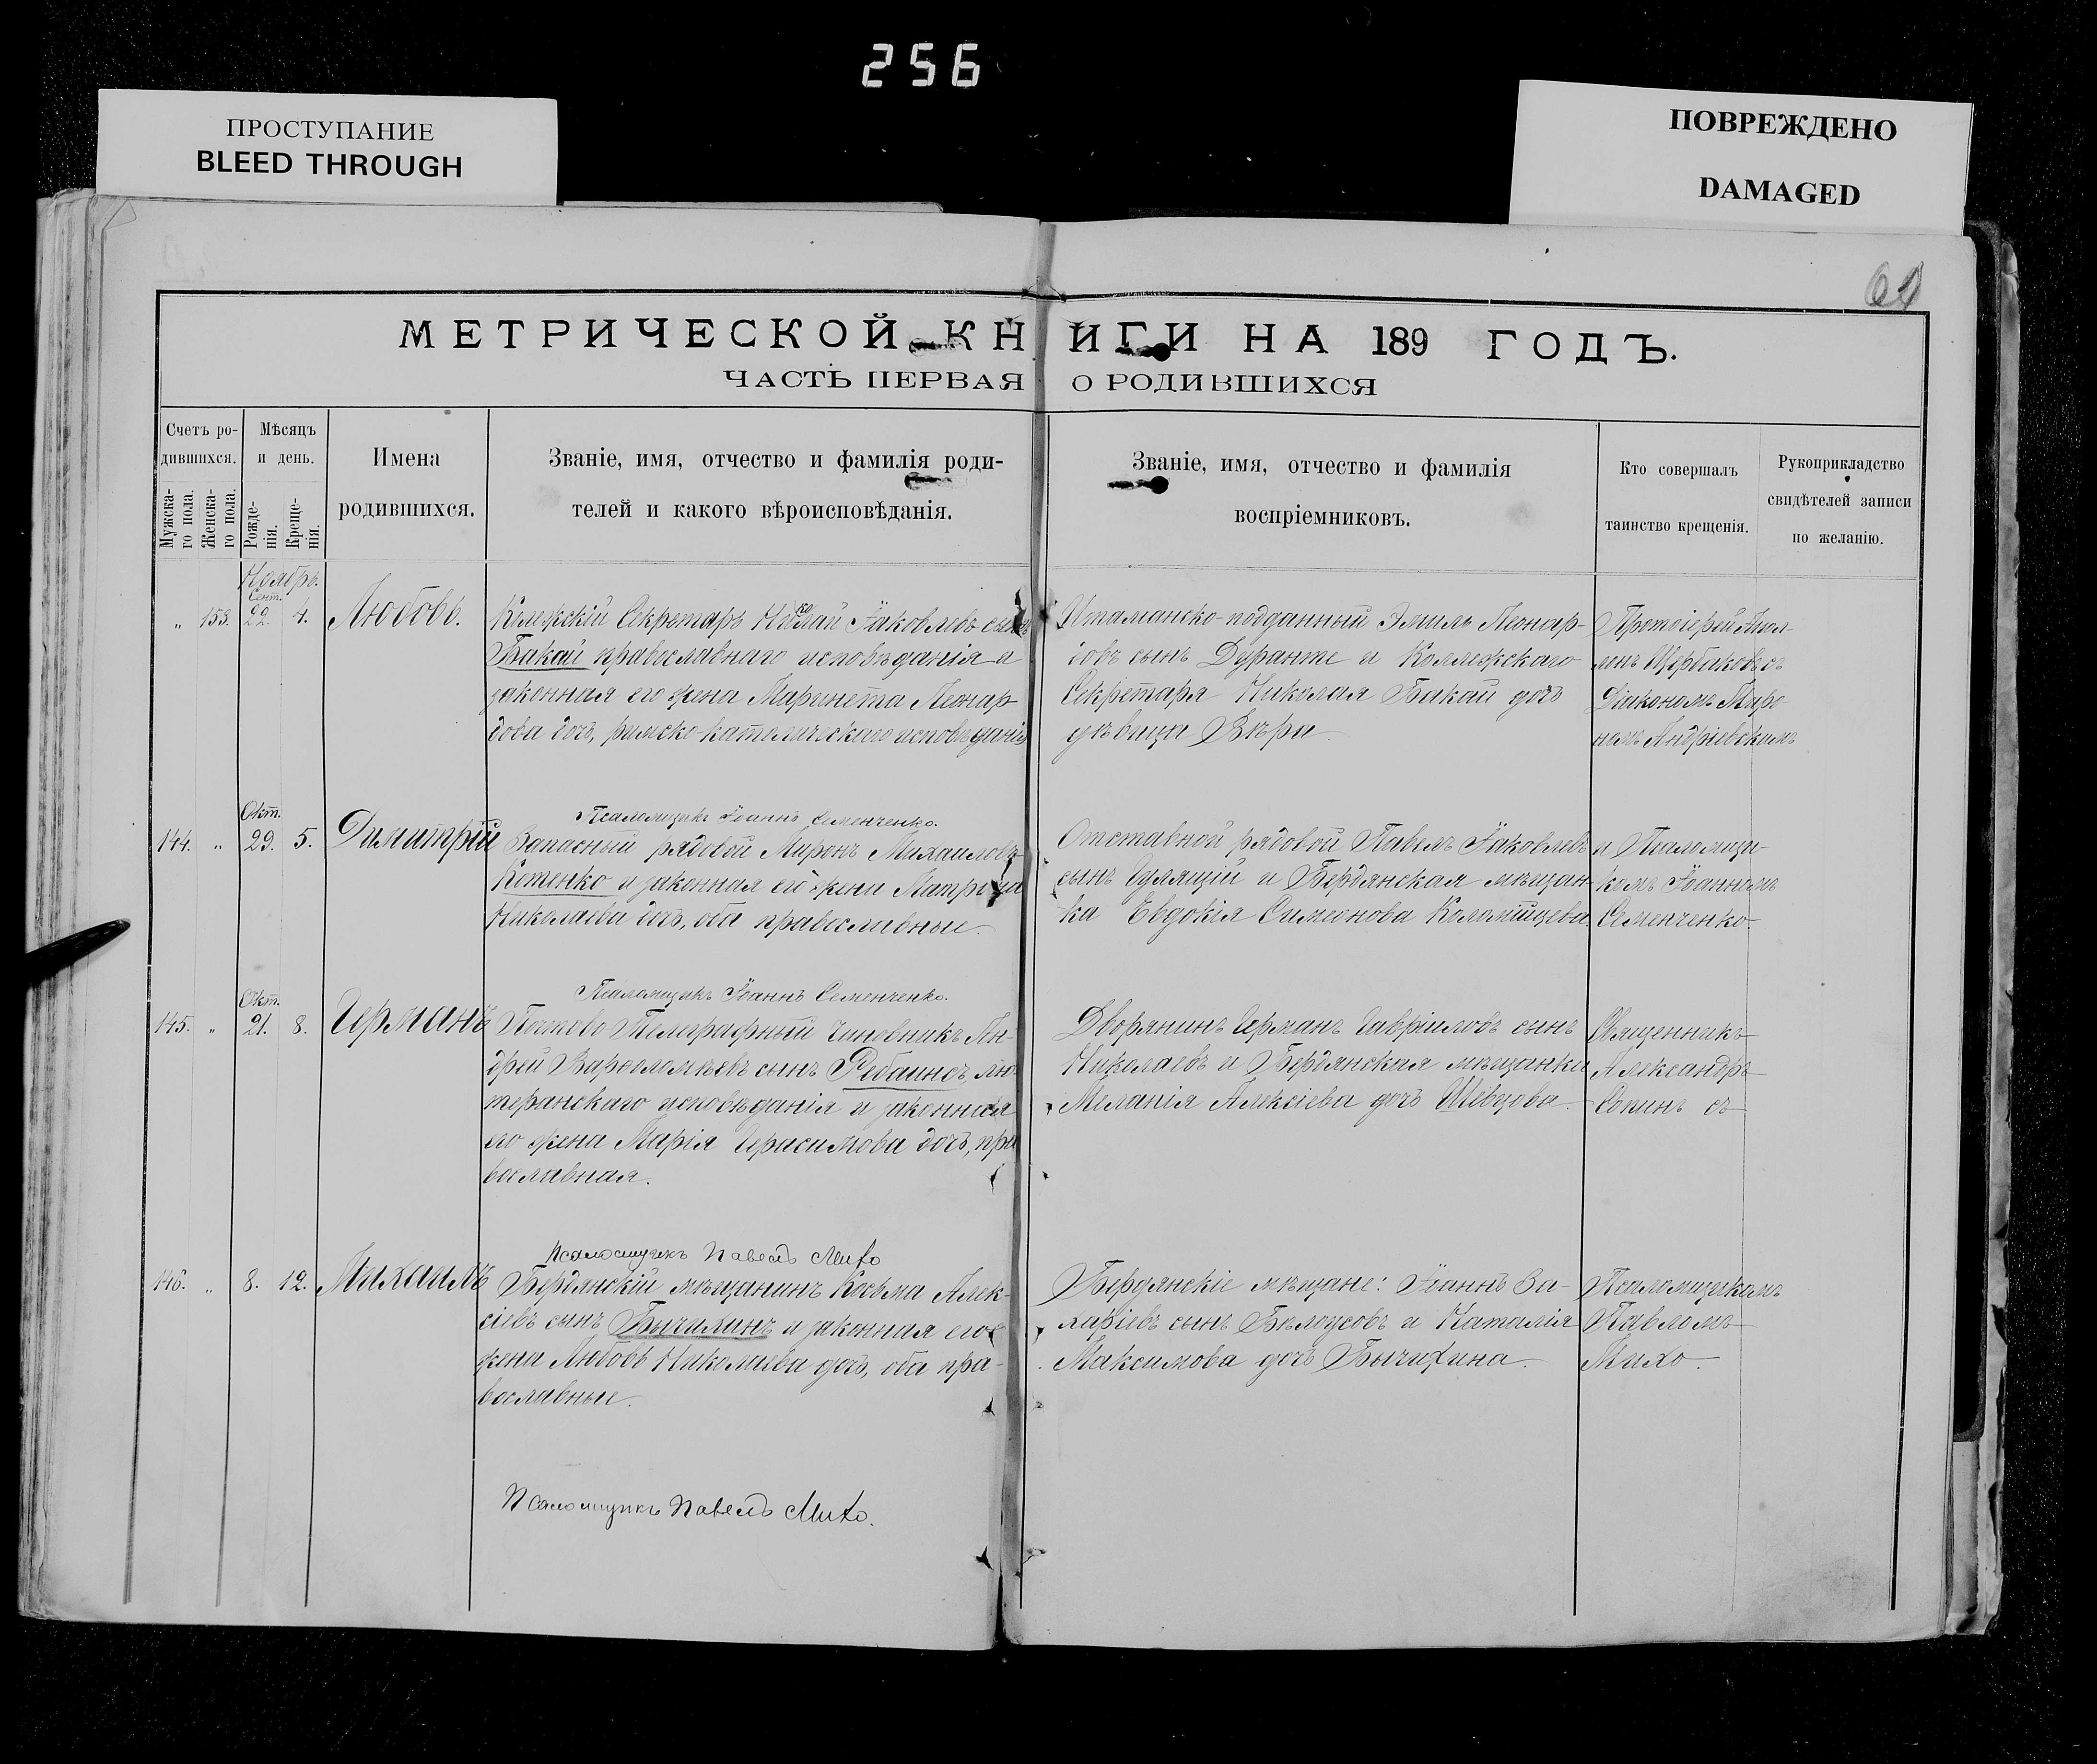 256
ПРОСТУПАНИЕ
BLEED THROUGH
ПОВРЕЖДЕНО
DAMAGED
МЕТРИЧЕСКОЙ КНИГИ НА 189 ГОДЪ.
ЧАСТЬ ПЕРВАЯ О РОДИВШИХСЯ
Счетъ ро-
дившихся.
Мужска-
го пола.
Женска-
го пола.
Мѣсяцъ
и день.
Рожде-
нія.
Креще-
нія.
Имена
родившихся.
Званіе, имя, отчество и фамилія роди-
телей и какого вѣроисповѣданія.
Званіе, имя, отчество и фамилія
воспріемниковъ.
Кто совершалъ
таинство крещенія.
Рукоприкладство
свидѣтелей записи
по желанію.
Ноябрь.
Сент.
„ 153. 22. 4. Любовь.
Колежскій Секретарь Николай Іаковлевъ сынъ
Бакай православнаго исповѣданія и
законная его жена Маринета Леонар-
дова дочь, римско-католическаго исповѣданія
Итальянско-подданный Эмиль Леонар-
довъ сынъ Дуранте и Коллежскаго
Секретаря Николая Бакай дочь
дѣвица Вѣра.
Протоіерей
Щербаковъ съ
Діакономъ Миро-
номъ Андріевскимъ
Псаломщикъ Іоаннъ Семенченко.
Окт.
144. „ 29. 5. Димитрій
Запасный рядовой Миронъ Михаиловъ
Котенко и законная его жена Матрона
Николаева дочь, оба православные.
Отставной рядовой Павелъ Іаковлевъ
сынъ Гулящій и Бердянская мѣщан-
ка Евдокія Симеонова Коломійцева.
и Псаломщи-
комъ Іоанномъ
Семенченко.
Псаломщикъ Іоаннъ Семенченко.
Окт.
145. „ 21. 8. Германъ
Почтово Телеграфный чиновникъ Ан-
дрей Варфоломѣевъ сынъ Ребаинсъ, лю-
теранскаго исповѣданія и законная
его жена Марія Герасимова дочь, пра-
вославная.
Дворянинъ Германъ Гавріиловъ сынъ
Николаевъ и Бердянская мѣщанка
Меланія Алексіева дочь Шевцова.
Священникъ
Александръ
Сопинъ съ
Псаломщикъ Павелъ Михо
146. „ 8. 12. Михаилъ
Бердянскій мѣщанинъ Косьма Алек-
сіевъ сынъ Бычихинъ и законная его
жена Любовь Николаева дочь, оба пра-
вославные.
Бердянскіе мѣщане: Іоаннъ За-
харіевъ сынъ Бѣлоусовъ и Наталія
Максимова дочь Бычихина.
Псаломщикомъ
Павломъ
Михо.
Псаломщикъ Павелъ Михо.